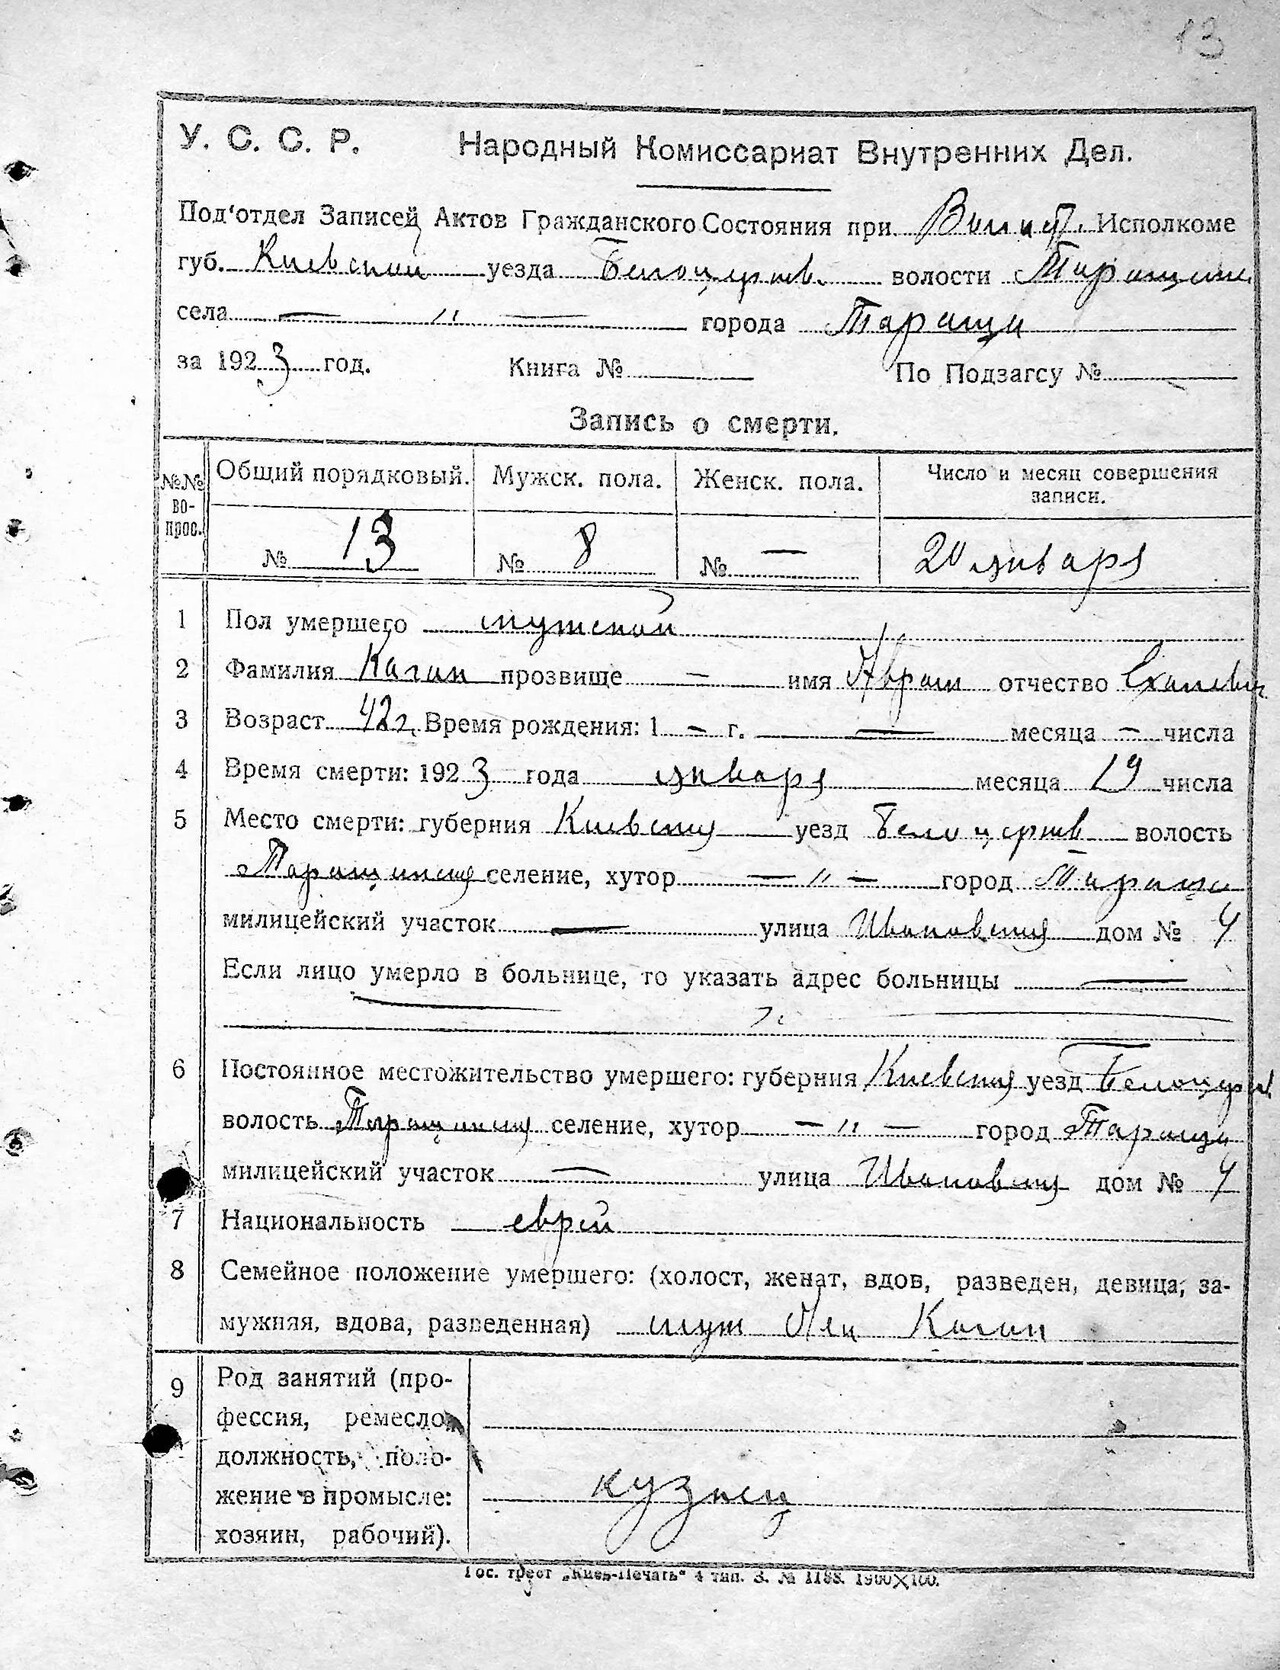 13
У. С. С. Р. Народный Комиссариат Внутренних Дел.
Под'отдел Записей Актов Гражданского Состояния при Исполкоме
губ. Киевской уезда Белоцерков. волости Таращанс
села — „ — города Таращи
за 1923 год. Книга № По Подзагсу №
Запись о смерти.
№№ вопрос. Общий порядковый. Мужск. пола. Женск. пола. Число и месяц совершения записи.
№ 13 № 8 № — 20 января
1 Пол умершего мужской
2 Фамилия Каган прозвище — имя Аврам отчество
3 Возраст 42 г. Время рождения: 1 — г. — месяца — числа
4 Время смерти: 1923 года января месяца 19 числа
5 Место смерти: губерния Киевская уезд Белоцерков волость
Таращанская селение, хутор — „ — город Тараща
милицейский участок — улица Ивановская дом № 4
Если лицо умерло в больнице, то указать адрес больницы —
— „ —
6 Постоянное местожительство умершего: губерния Киевская уезд Белоцерков
волость Таращанская селение, хутор — „ — город Тараща
милицейский участок — улица Ивановская дом № 4
7 Национальность еврей
8 Семейное положение умершего: (холост, женат, вдов, разведен, девица, за-
мужняя, вдова, разведенная) муж Каган
9 Род занятий (про-
фессия, ремесло,
должность, поло-
жение в промысле:
хозяин, рабочий).
кузнец
Гос. трест „Киев-Печать“ 4 тип. З. № 1188. 1900×100.